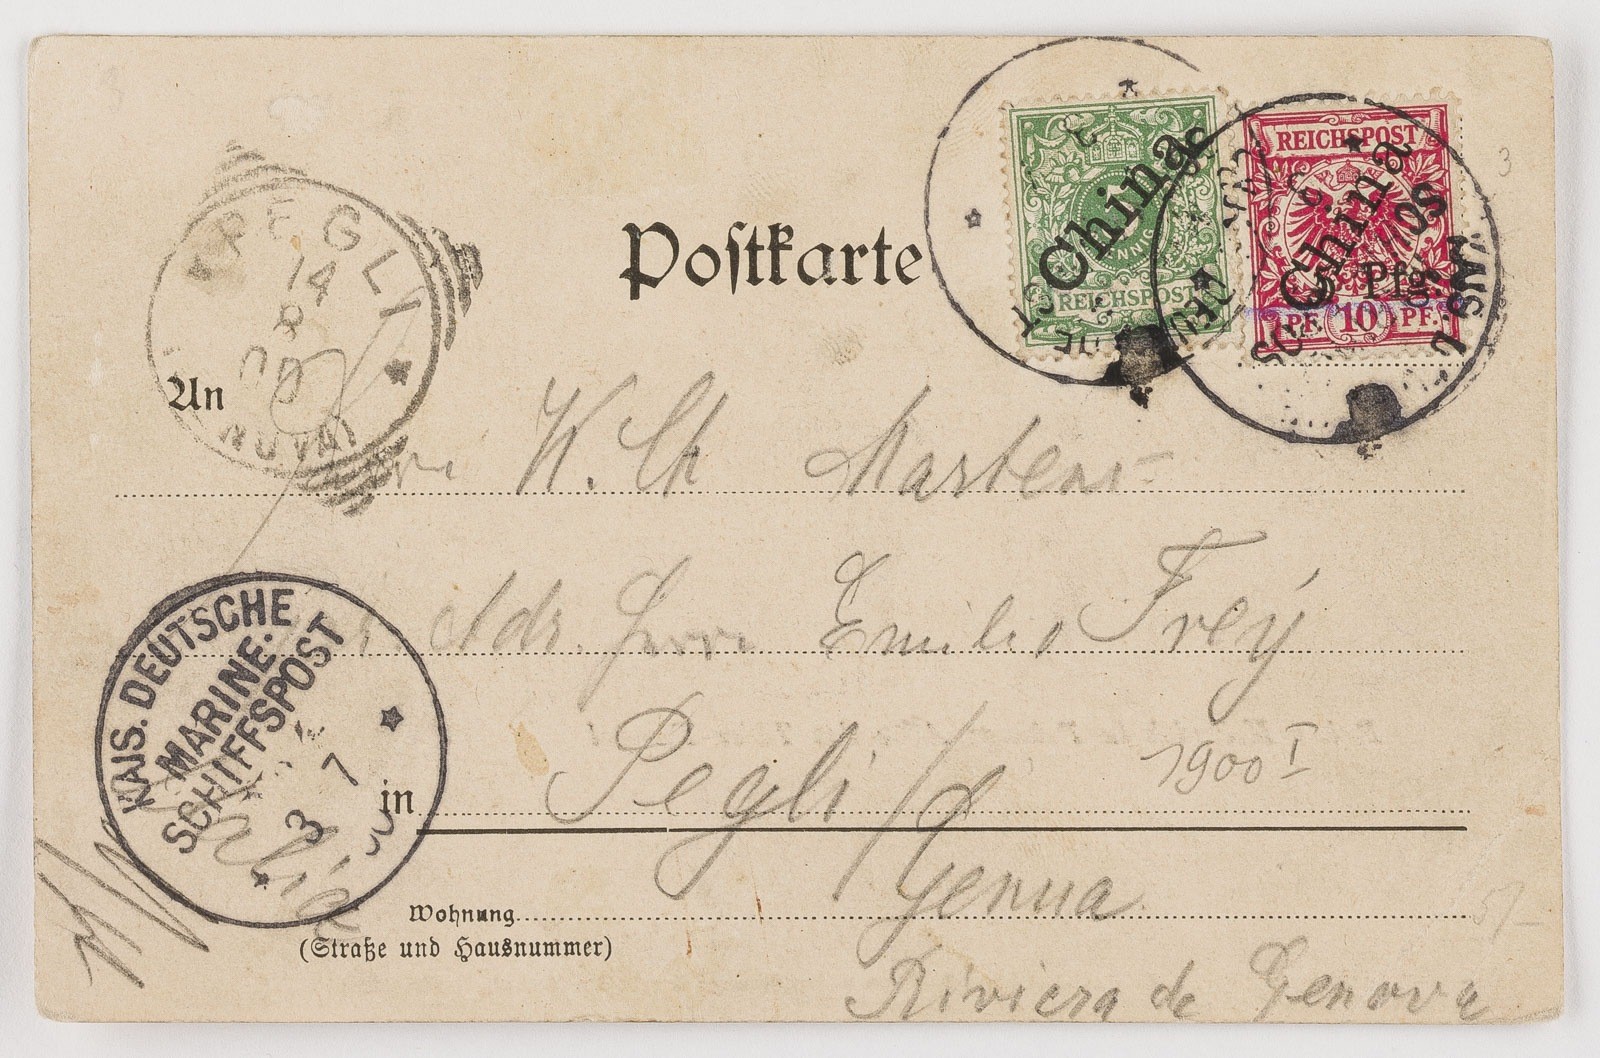 Postkarte
REICHSPOST
China
REICHSPOST
China
5 Pfg.
PF. 10 PF.
PEGLI
14
8
00
An
W. Ch Martens
Adr. Herr Emilio Frey
Pegli /
1900 I
KAIS. DEUTSCHE
MARINE-
SCHIFFSPOST
3 7
in
Genua
Wohnung
(Straße und Hausnummer)
Riviera de Genova